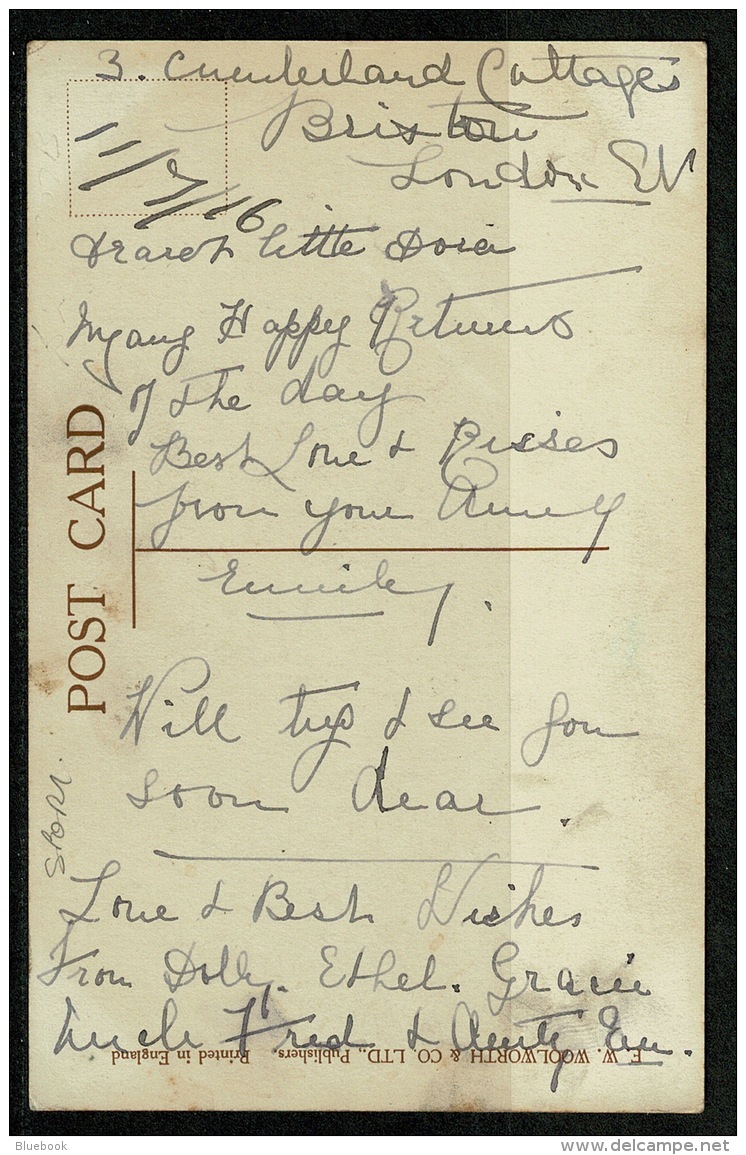 3. Cumberland Cottages
Brixton
London
11/7/16
Dearest little Doris
Many Happy Returns
of the day
Best Love & Kisses
from your Aunty
Emily.
Will try & see you
soon dear.
Love & Best Wishes
From Dolly. Ethel. Gracie
Uncle Fred & Aunty Em.
POST CARD
Sport.
F. W. WOOLWORTH & CO. LTD., Publishers. Printed in England
Bluebook
delcampe.net